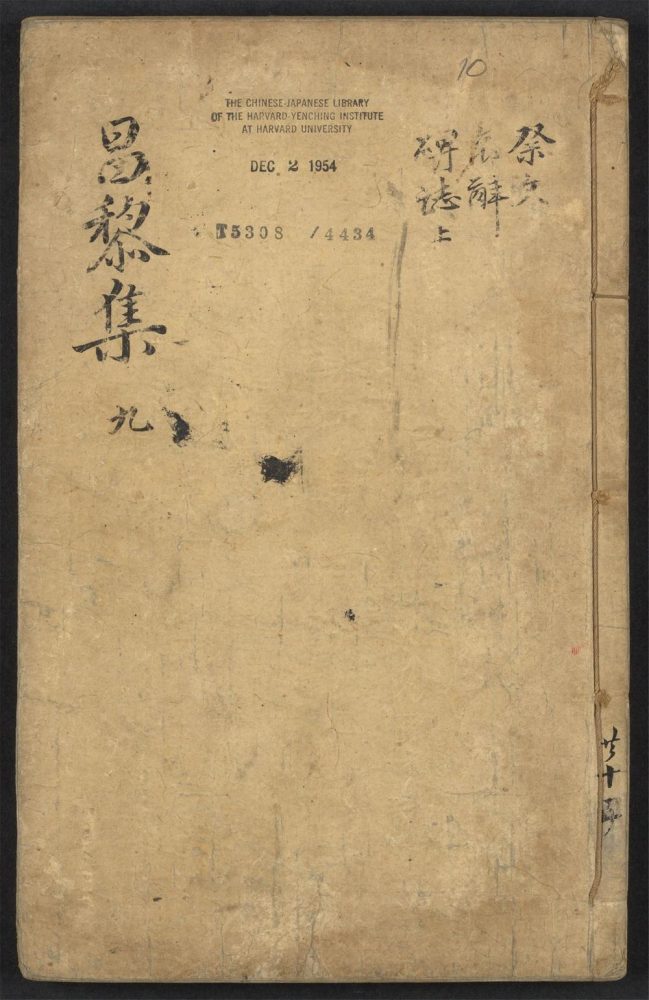 10
THE CHINESE-JAPANESE LIBRARY
OF THE HARVARD-YENCHING INSTITUTE
AT HARVARD UNIVERSITY
DEC 2 1954
T5308 /4434
祭文
哀辭
碑誌上
昌黎集 九
共十